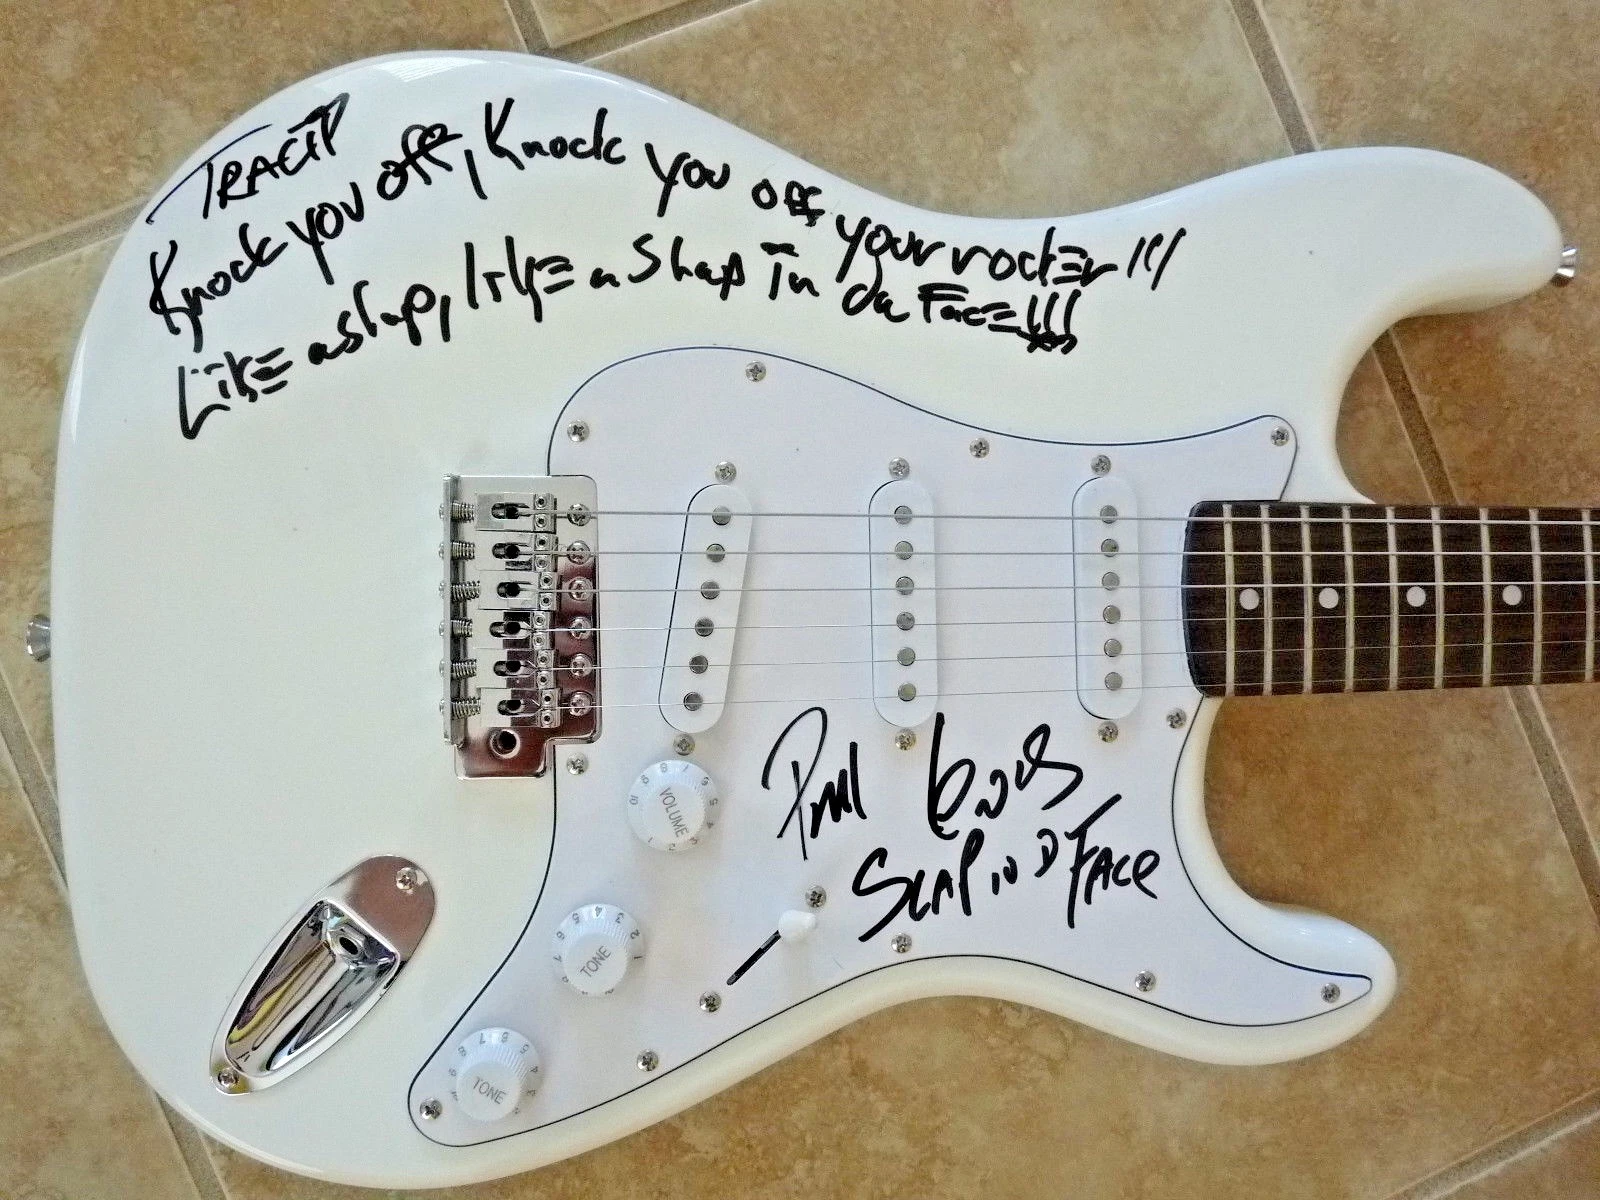 TRACII
Knock you off, Knock you off your rocker !!!
Like a slap, like a slap in da Face!!!
Phil Lewis
SLAP IN D FACE
VOLUME
TONE
TONE